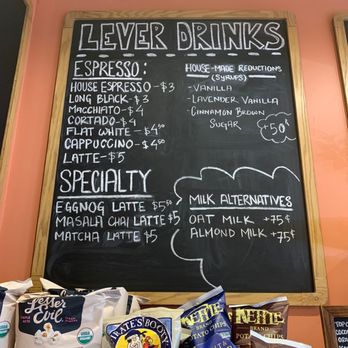 LEVER DRINKS
ESPRESSO:
HOUSE ESPRESSO - $3
LONG BLACK - $3
MACCHIATO - $4
CORTADO - $4
FLAT WHITE - $4⁵⁰
CAPPUCCINO - $4⁵⁰
LATTE - $5
HOUSE-MADE REDUCTIONS
(SYRUPS)
- VANILLA
- LAVENDER VANILLA
- CINNAMON BROWN
SUGAR
+50¢
SPECIALTY
EGGNOG LATTE $5⁵⁰
MASALA CHAI LATTE $5
MATCHA LATTE $5
MILK ALTERNATIVES
OAT MILK +75¢
ALMOND MILK +75¢
Lesser
Evil
KETTLE
BRAND
POTATO CHIPS
KETTLE
BRAND
POTATO CHIPS